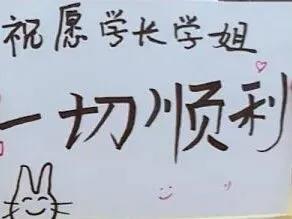 祝愿学长学姐
一切顺利